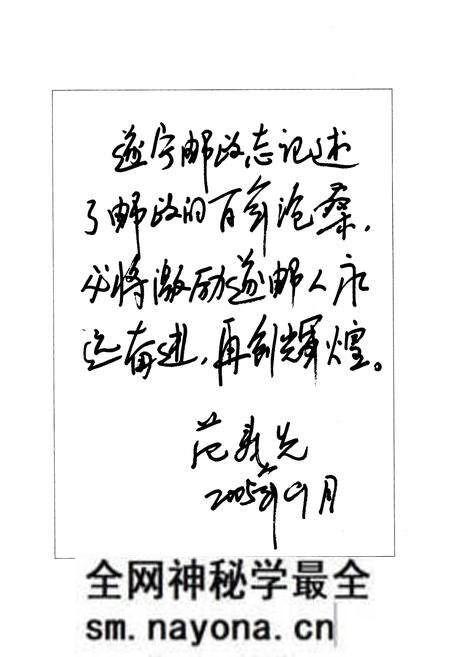 遂宁邮政志记述
了邮政的百年沧桑,
必将激励遂邮人永
远奋进,再创辉煌。
范
2005年9月
全网神秘学最全
sm.nayona.cn